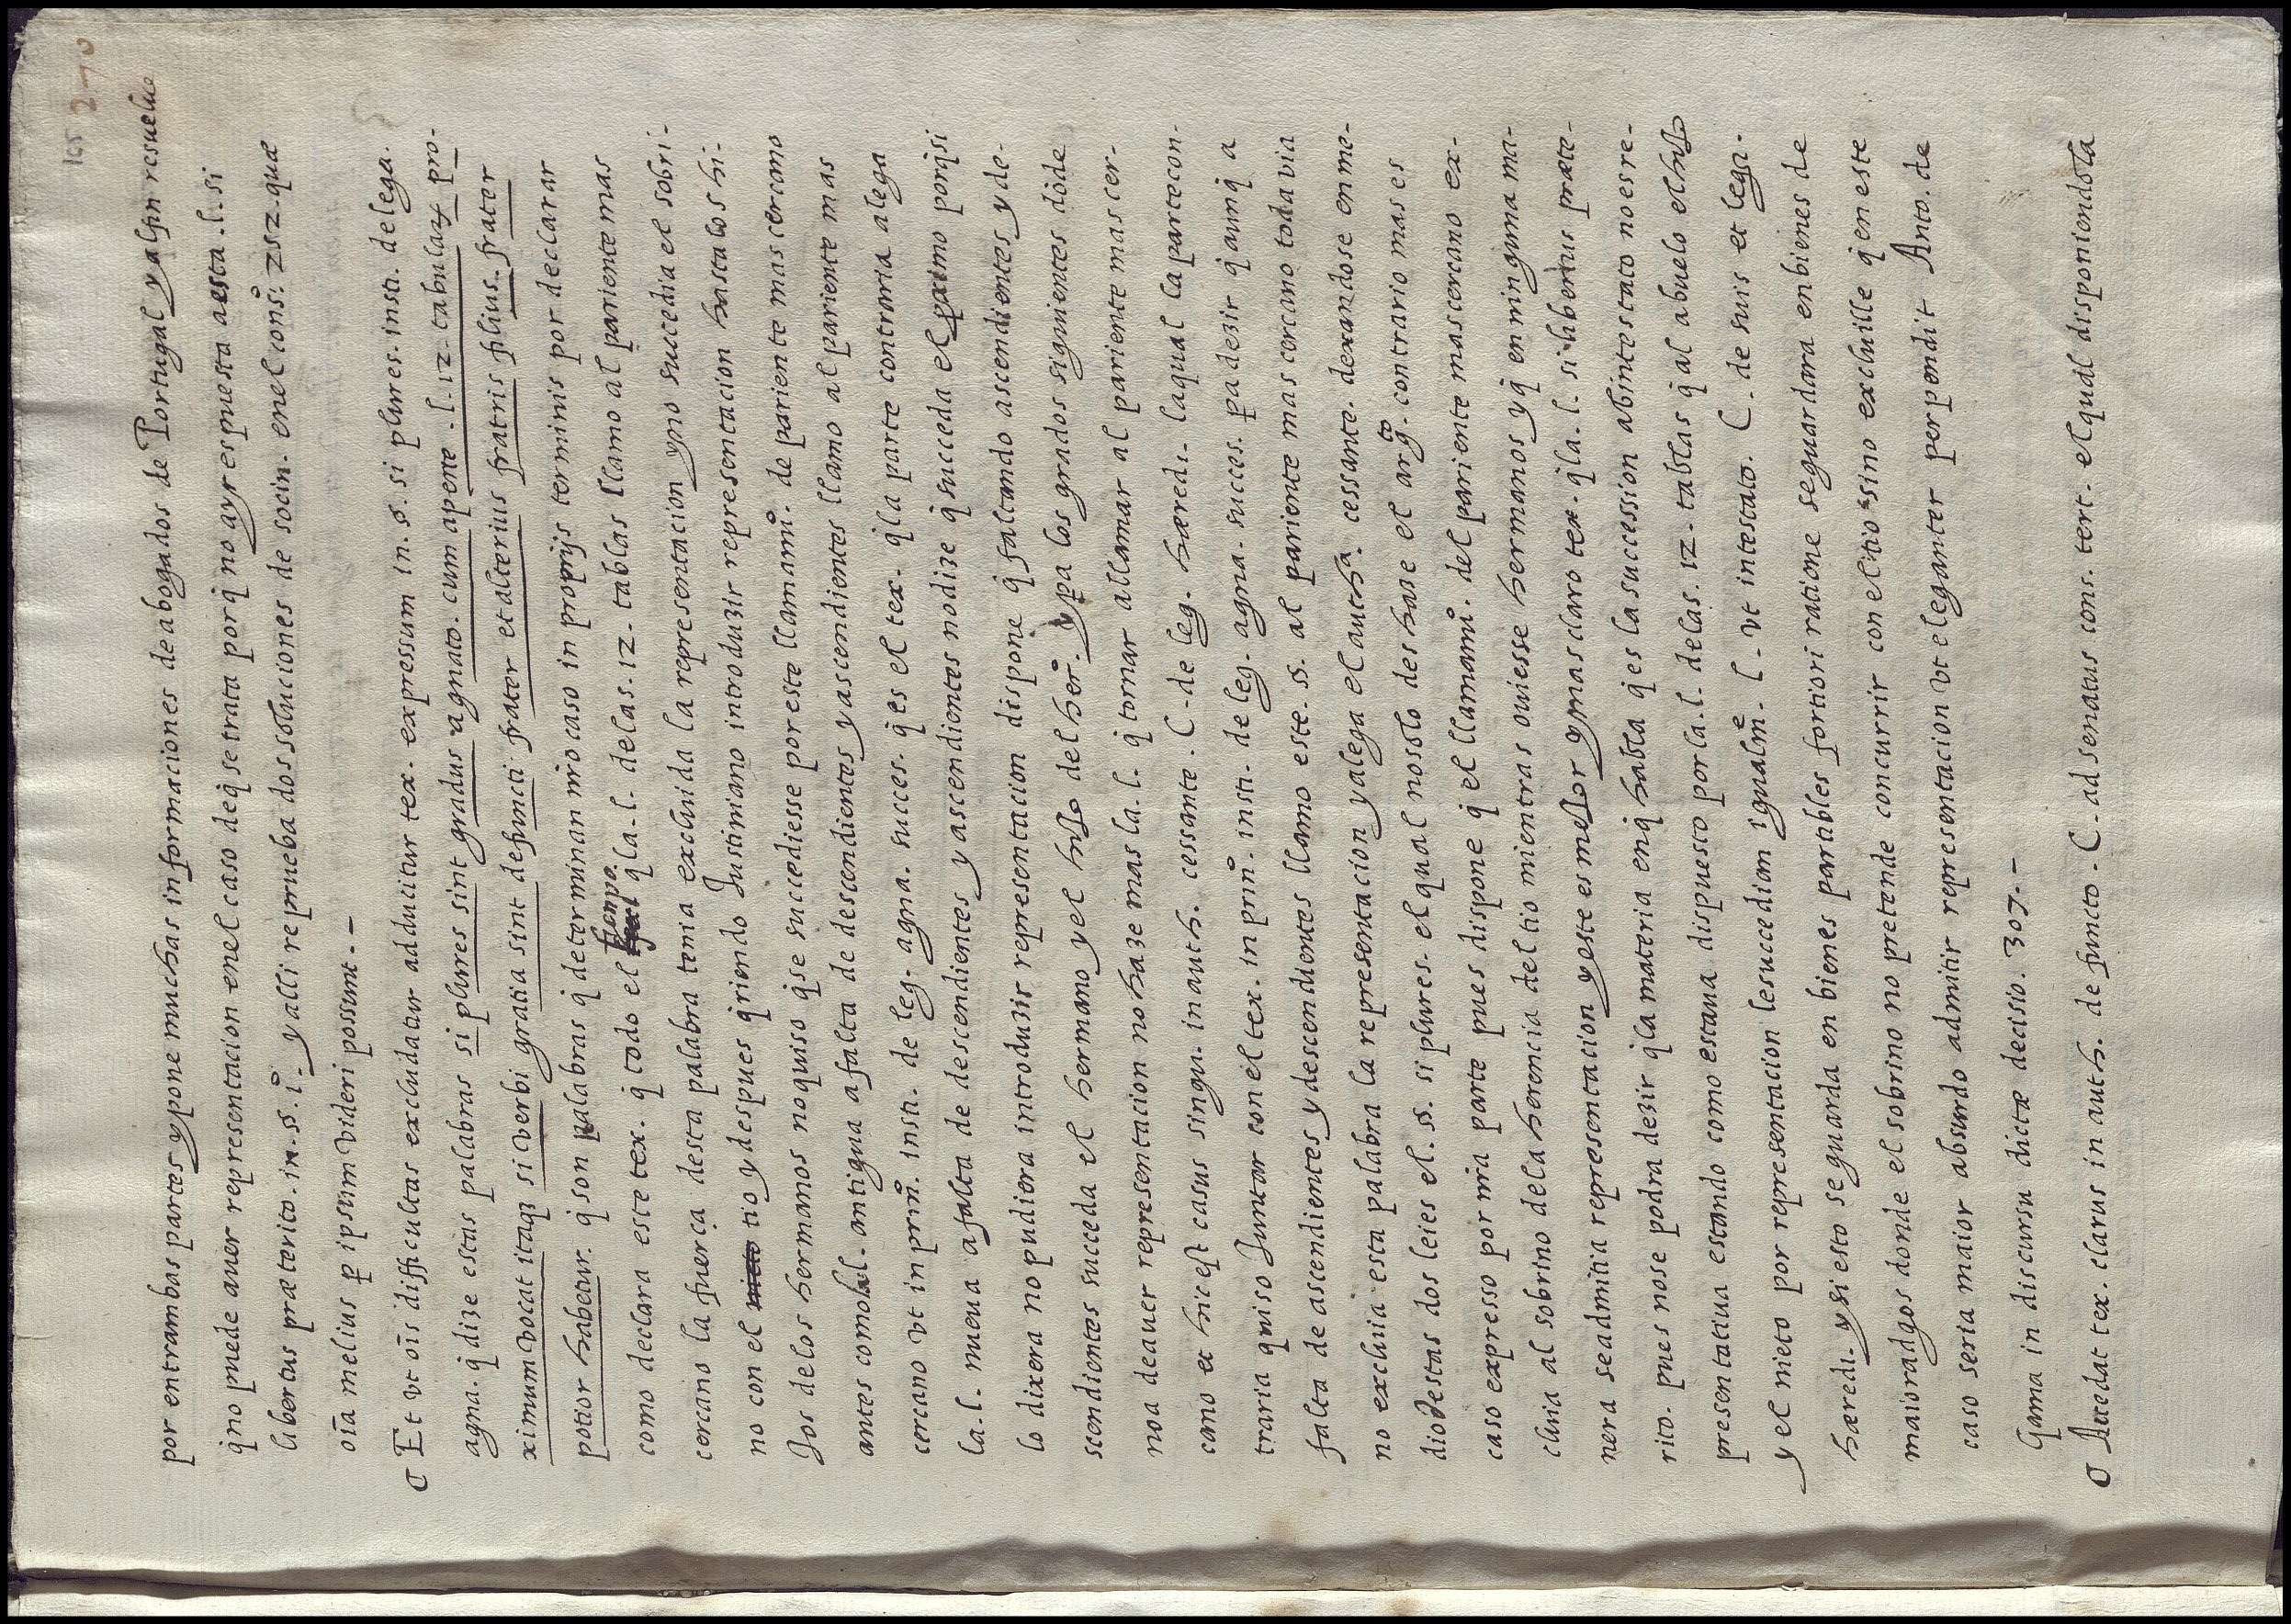 165
270
por entrambas partes y pone muchas informaciones de abogados de Portugal y al fin resuelue
q̃ no puede auer representacion en el caso de q̃ se trata porq̃ no ay respuesta a esta .l. si
libertus præterito. in .§. i.º y alli reprueba dos soluciones de socin. en el cons.º 252. quæ
oĩa melius ꝑ ipsum videri possunt. -
Et vt oĩs difficultas excludatur adducitur tex. expressum in .§. si plures. insti. de lega.
agna. q̃ dize estas palabras si plures sint gradus agnato. cum aperte .l. 12. tabulaꝝ pro-
ximum vocat itaqȝ si verbi gratia sint defuncti frater et alterius fratris filius. frater
potior habetur. q̃ son palabras q̃ determinan nr̃o caso in proprijs terminis por declarar
como declara este tex. q̃ todo el tienpo. q̃ la .l. de las .12. tablas llamo al pariente mas
cercano la fuerça desta palabra tenia excluida la representacion y no succedia el sobri-
no con el nieto tio y despues q̃riendo Justiniano introduzir representacion hasta los hi-
Jos de los hermanos no quiso q̃ se succediesse por este llamamº. de pariente mas cercano
antes como la l. antigua a falta de descendientes y ascendientes llamo al pariente mas
cercano vt in prinº. insti. de leg. agna. succes. q̃ es el tex. q̃ la parte contraria alega
la .l. nueua a falta de descendientes y ascendientes no dize q̃ succeda el primo porq̃ si
lo dixera no pudiera introduzir representacion dispone q̃ faltando ascendientes y de-
scendientes succeda el hermano y el hiJo del herº. y ꝑa los grados siguientes dõde
no a de auer representacion no haze mas la .l. q̃ tornar a llamar al pariente mas cer-
cano et hic est casus singu. in auth. cessante. C. de leg. hæredi. la qual la parte con-
traria quiso Juntar con el tex. in prinº. insti. de leg. agna. succes. ꝑa dezir q̃ aunq̃ a
falta de ascendientes y descendientes llamo este .§. al pariente mas cercano toda via
no excluia esta palabra la representacion y alega el authª. cessante. dexandose en me-
dio destas dos leies el .§. si plures. el qual no solo deshaze el argᵗᵒ. contrario mas es
caso expresso por mia parte pues dispone q̃ el llamamº. del pariente mas cercano ex-
cluia al sobrino de la herencia del tio mientras ouiesse hermanos y q̃ en ninguna ma-
nera se admitia representacion y este es meJor y mas claro tex. q̃ la .l. si libertus præte-
rito. pues no se podra dezir q̃ la materia en q̃ habla q̃ es la succession abintestato no es re-
presentatiua estando como estaua dispuesto por la .l. de las .12. tablas q̃ al abuelo el hiJo
y el nieto por representacion le succedian igualmº. l. vt intestato. C. de suis et legi.
hæredi. y si esto se guarda en bienes partibles fortiori ratione se guardara en bienes de
maioradgos donde el sobrino no pretende concurrir con el tio sino excluille q̃ en este
caso seria maior absurdo admitir representacion vt eleganter perpendit Anto. de
Gama in discursu dictæ decisio. 307. -
Accedat tex. clarus in auth. de functo. C. ad senatus cons. tert. el qual disponiendo la